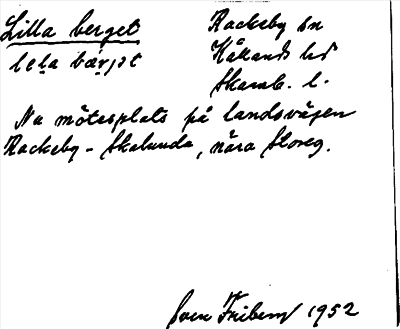 Lilla berget
Rackeby sn
Håkands hd
Skarab. l.
Nu mötesplats på landsvägen
Rackeby - Skalunda, nära Storeg.
Sven Friberg 1952